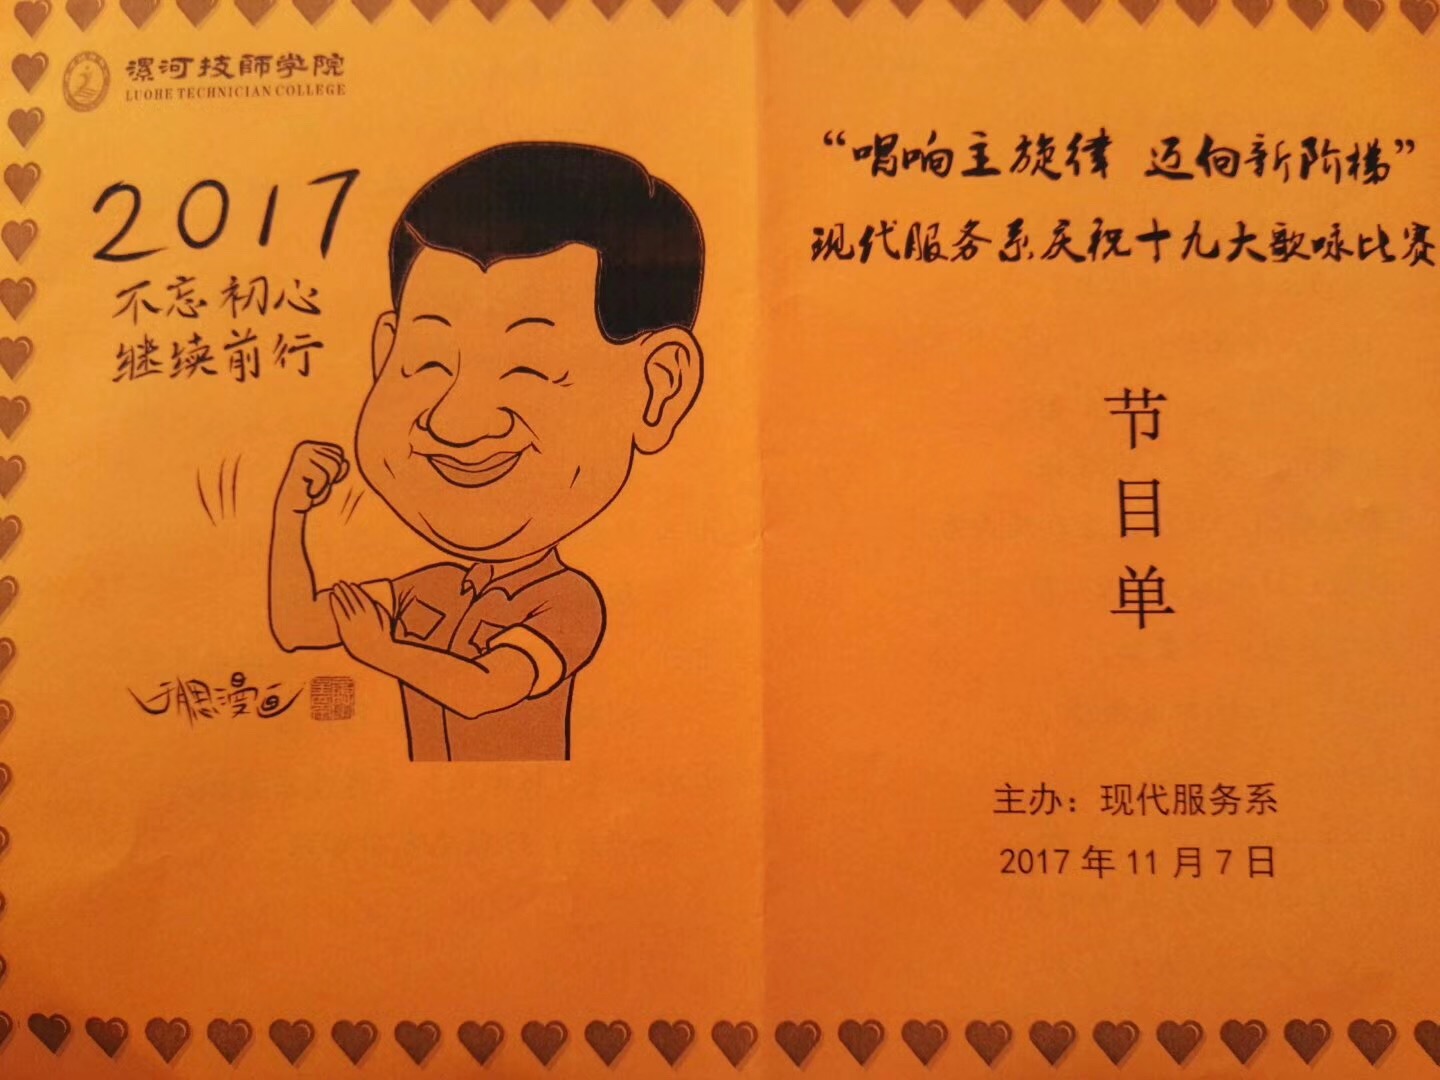 漯河技師学院
LUOHE TECHNICIAN COLLEGE
2017
不忘初心
继续前行
漫画
“唱响主旋律 迈向新阶梯”
现代服务系庆祝十九大歌咏比赛
节
目
单
主办：现代服务系
2017年11月7日